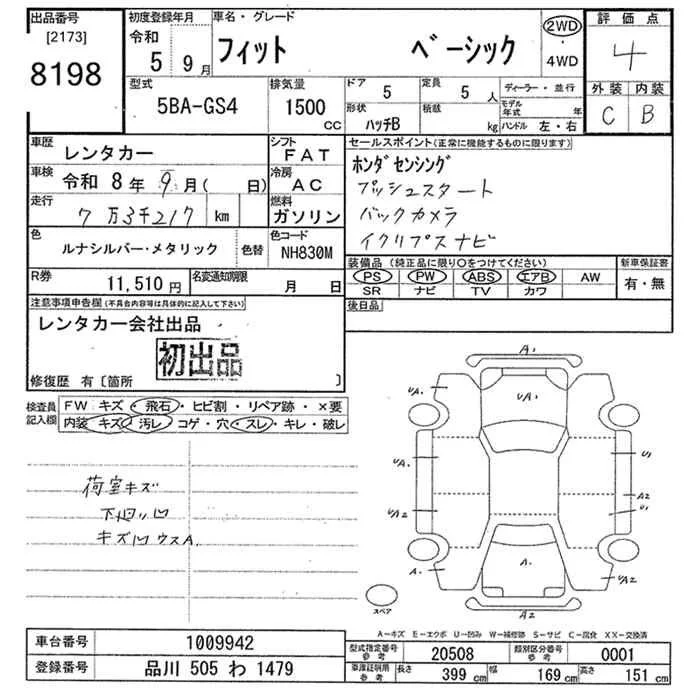 出品番号
[2173]
8198
初度登録年月
令和
5 9月
車名・グレード
フィット ベーシック
2WD
・
4WD
評価点
4
型式
5BA-GS4
排気量
1500
cc
ドア
5
定員
5 人
形状
ハッチB
積載
kg
ディーラー・並行
モデル年式 年
ハンドル 左・右
外装 内装
C B
車歴
レンタカー
シフト
FAT
車検
令和 8年 9月( 日)
冷房
AC
走行
7万3千217 km
燃料
ガソリン
色
ルナシルバー・メタリック
色替
色コード
NH830M
R券
11,510 円
名変通知期限
月 日
セールスポイント(正常に機能するものに限ります)
ホンダセンシング
プッシュスタート
バックカメラ
イクリプスナビ
装備品(純正品に限り○をつけてください)
PS PW ABS エアB AW
SR ナビ TV カワ
新車保証書
有・無
後日品
注意事項申告欄(不具合内容等は具体的に記入して下さい)
レンタカー会社出品
初出品
修復歴 有〔箇所 〕
検査員
記入欄
FW キズ・飛石・ヒビ割・リペア跡・×要
内装 キズ・汚レ・コゲ・穴・スレ・キレ・破レ
荷室キズ
下廻り凹
キズ凹ウスA.
A1
UA.
UA1
UA.
U1
A2
UA2
U1
A.
A.
UA2
A2
スペア
A-キズ E-エクボ U-凹み W-補修跡 S-サビ C-腐食 XX-交換済
車台番号
1009942
登録番号
品川 505 わ 1479
型式指定番号
参考
20508
類別区分番号
参考
0001
車庫証明用
参考
長さ
399 cm
幅
169 cm
高さ
151 cm